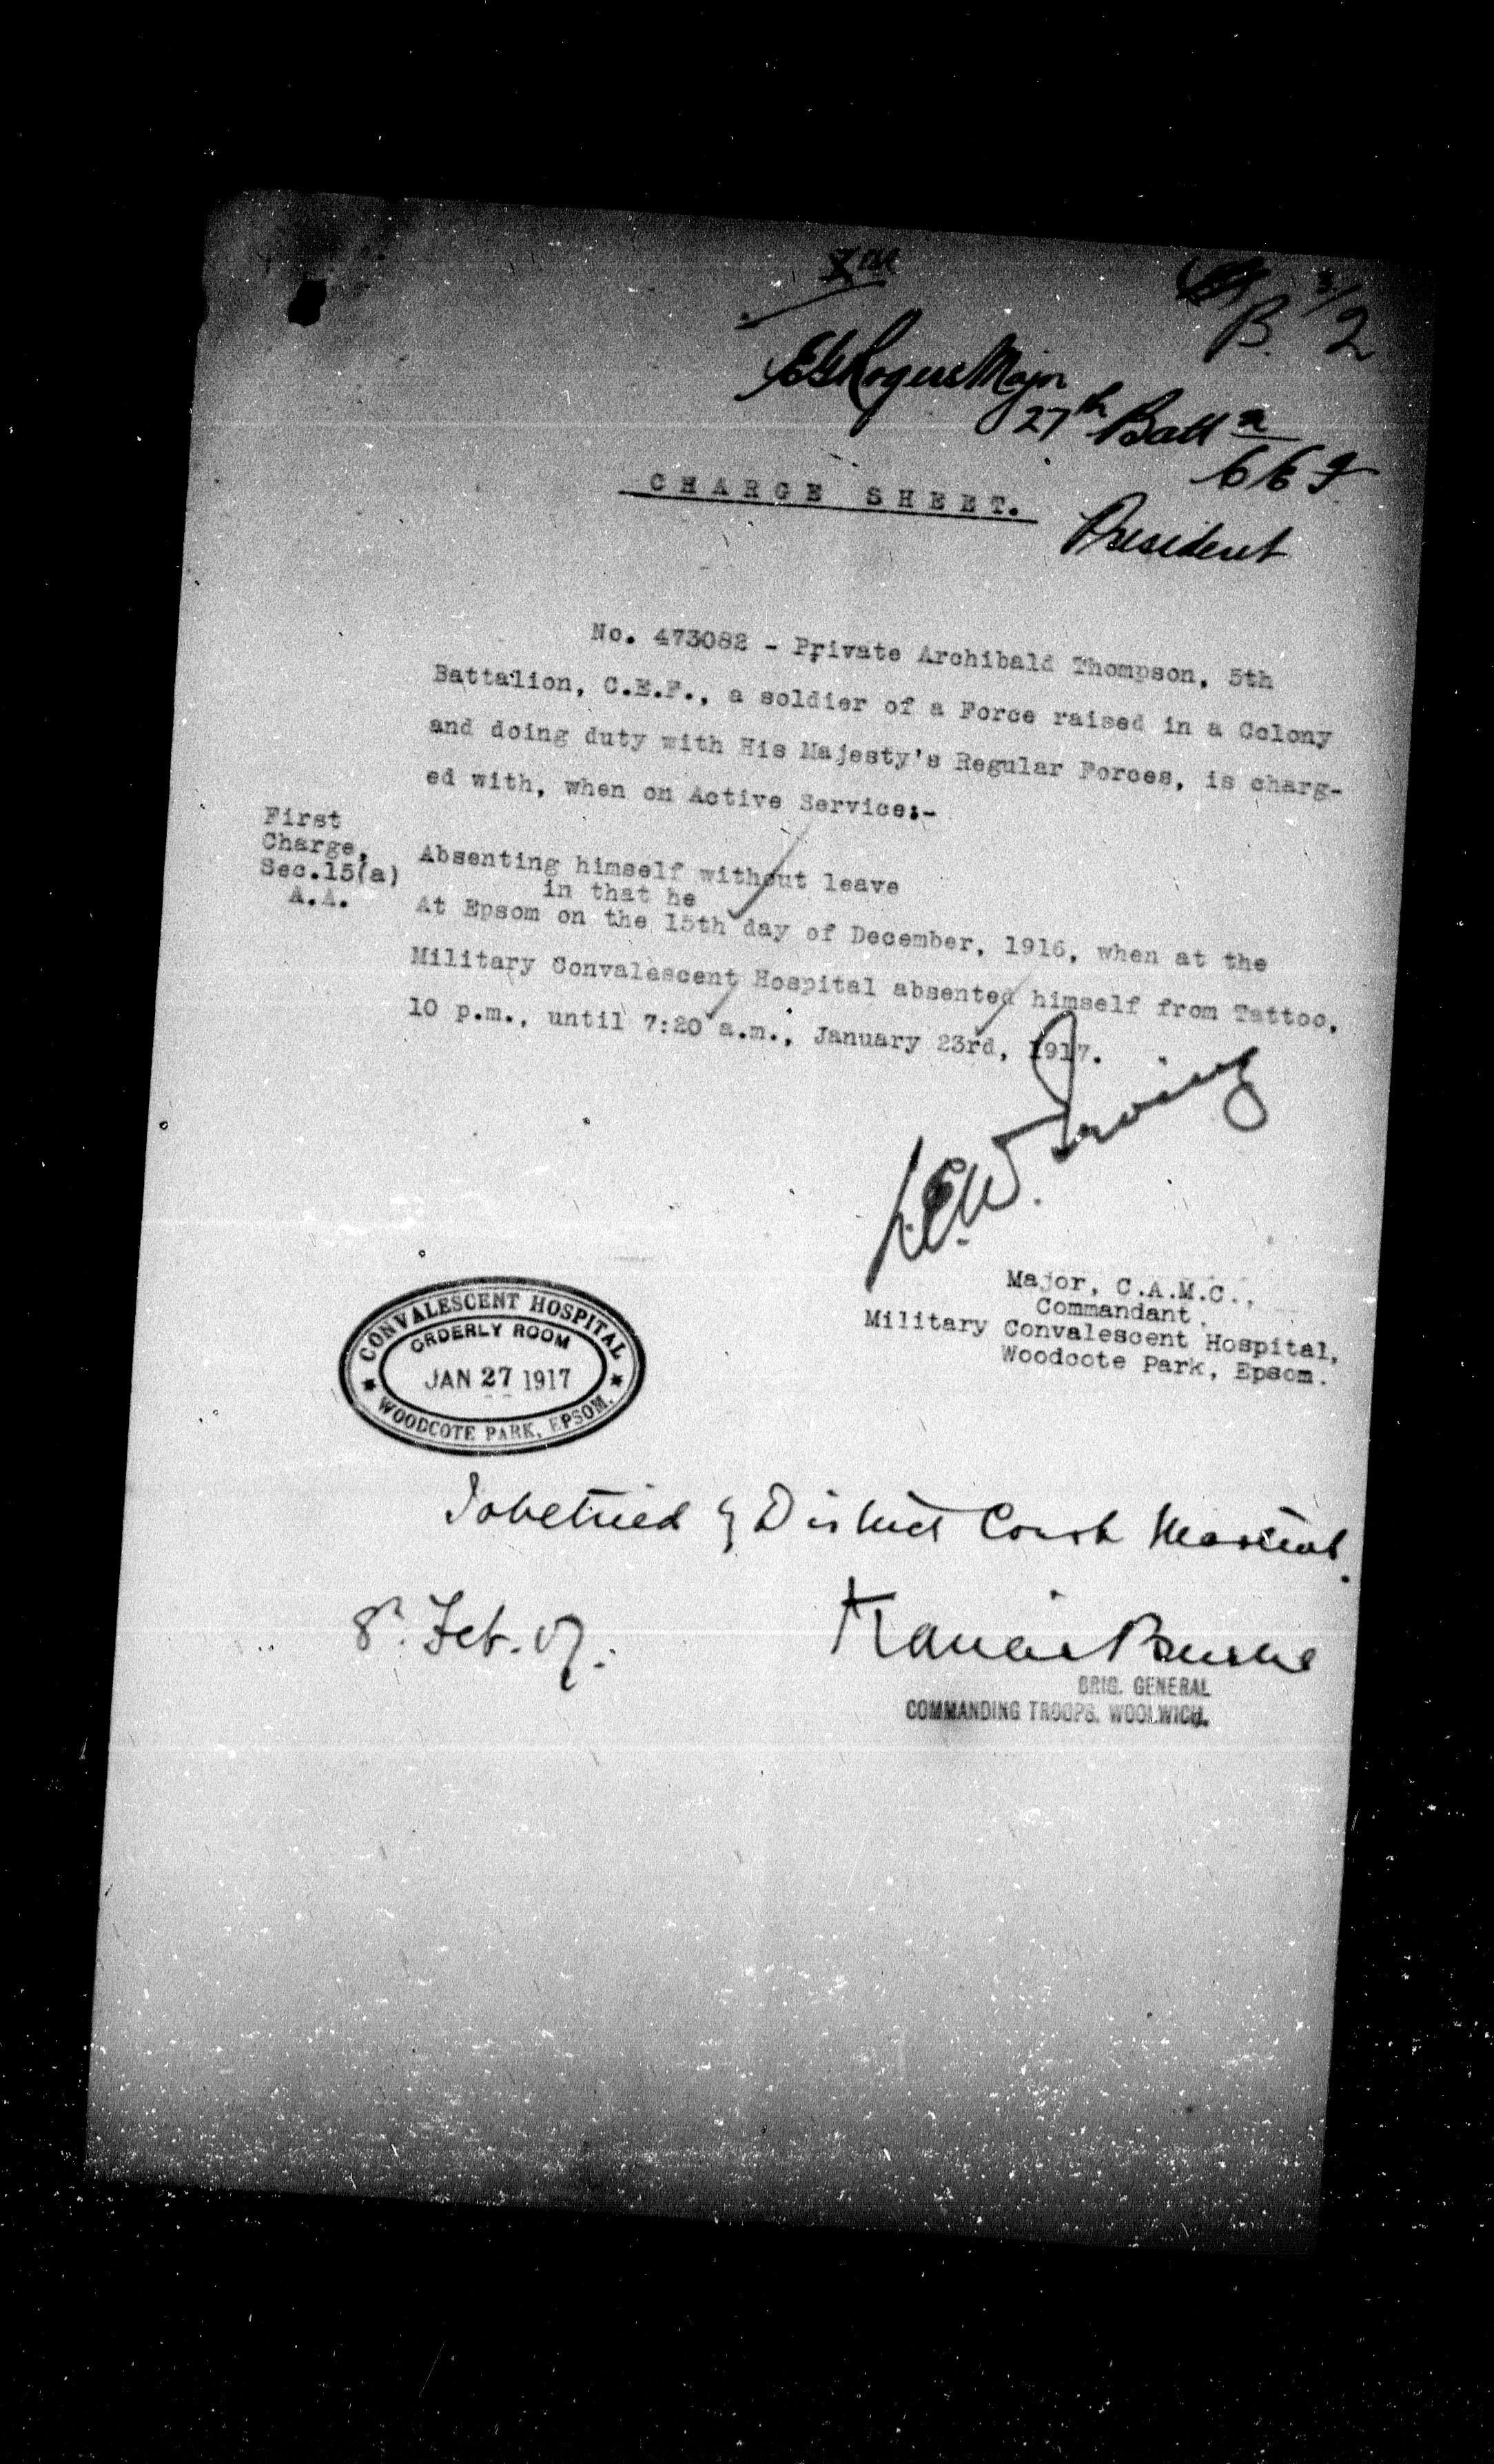 B. 3/2
Rogers Major
27th Battn
President
CHARGE SHEET.
No. 473082 - Private Archibald Thompson, 5th
Battalion, C.E.F., a soldier of a Force raised in a Colony
and doing duty with His Majesty's Regular Forces, is charg-
ed with, when on Active Service:-
First
Charge,
Sec.15(a)
A.A.
Absenting himself without leave
in that he
At Epsom on the 15th day of December, 1916, when at the
Military Convalescent Hospital absented himself from Tattoo,
10 p.m., until 7:20 a.m., January 23rd, 1917.
L.E.W. Irving
Major, C.A.M.C.,
Commandant.
Military Convalescent Hospital,
Woodcote Park, Epsom.
CONVALESCENT HOSPITAL
ORDERLY ROOM
JAN 27 1917
WOODCOTE PARK, EPSOM.
To be tried by District Court Martial.
8th Feb. 17.
BRIG. GENERAL
COMMANDING TROOPS. WOOLWICH.